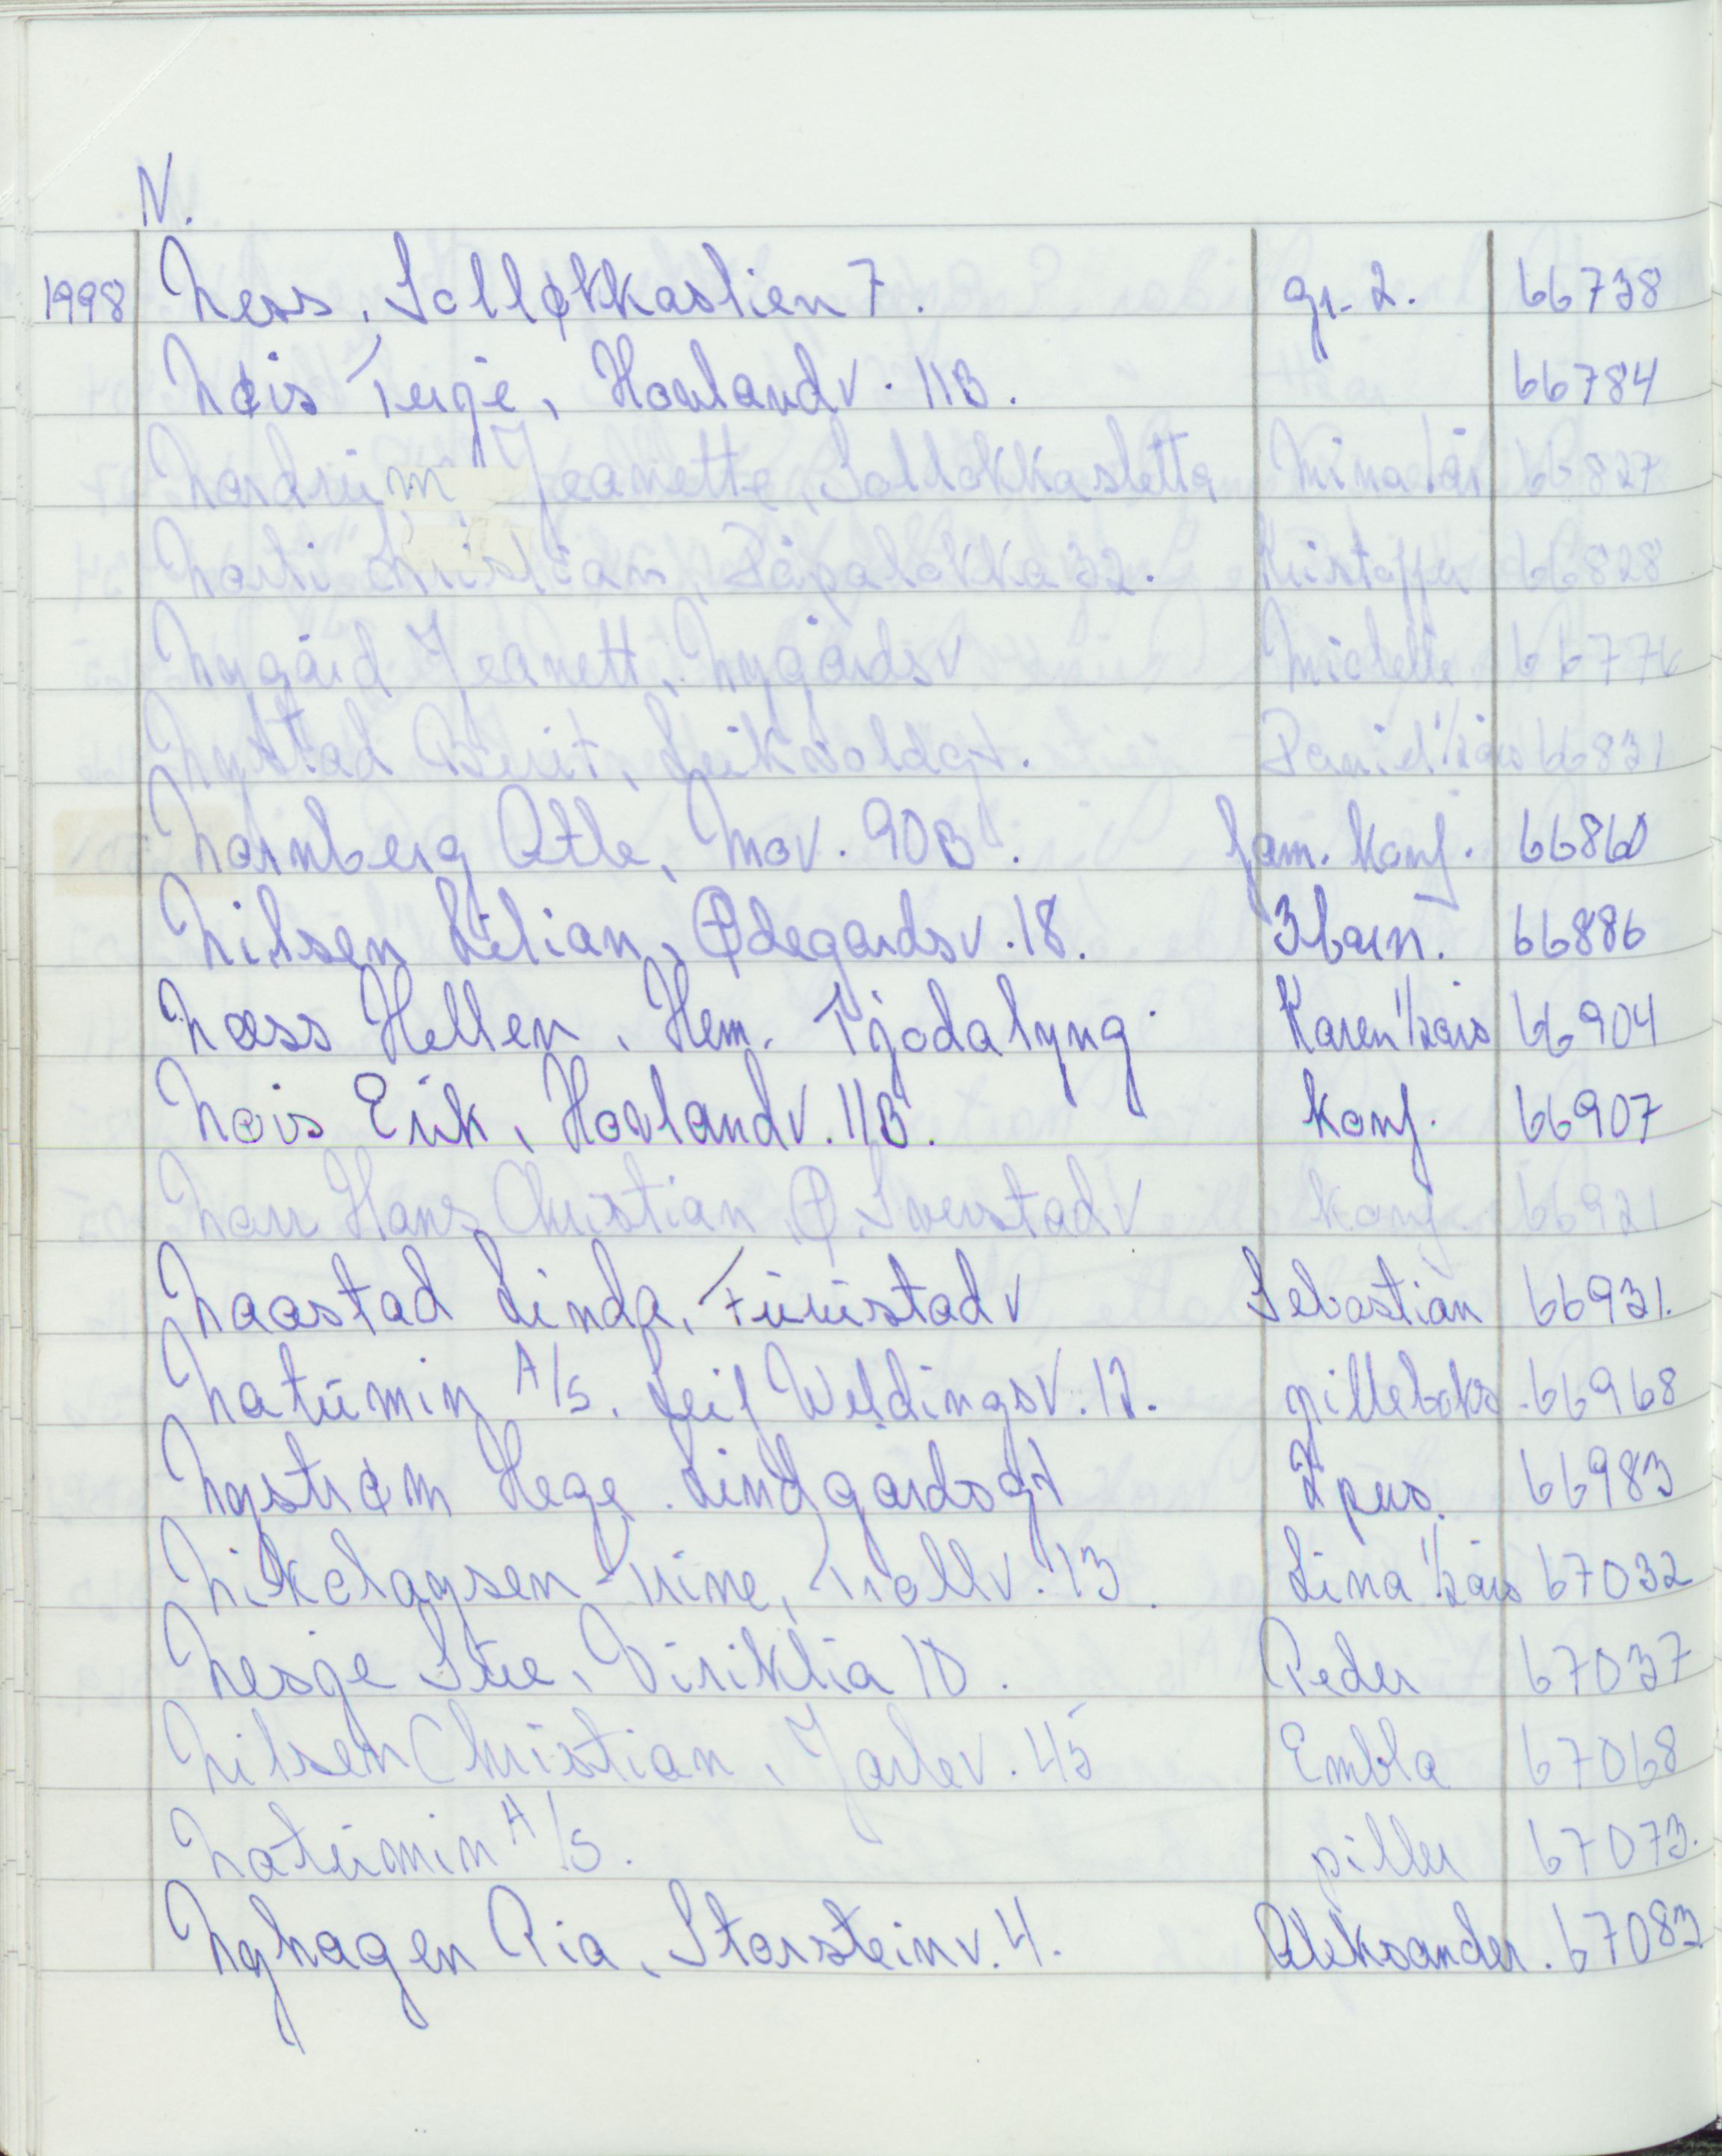 N.
1998 Ness, Solløkkaslien 7. gr. 2. 66738
Nøis Terje, Hovlandv. 11B. 66784
Nordrum Jeanette, Solløkkasletta Mina 1 år 66827
Christian, 32. Kristoffer 66828
Nygård Jeanett, Nygårdsv Michelle 66776
Nystad Berit, Leikvoldgt. Daniel 1/2 års 66831
Nornberg Atle, Mov. 90B. fam. konf. 66860
Nilsen Lilian, Ødegårdsv. 18. 3 barn. 66886
Næss Hellen, Hem. Tjodalyng. Karen 1/2 års 66904
Nøis Erik, Hovlandv. 11B. konf. 66907
Hans Christian, Ø. Sverstadv konf. 66921
Naastad Linda, Furustadv Sebastian 66931.
Naturmin A/S. Leif Weldingsv. 12. pilleboks. 66968
Nystrøm Hege. Lindgårdsgt 2 pers. 66983
Nikolaysen Trine, Trollv. 13. Lina 1/2 års 67032
Nesje Siw, Viriklia 10. Peder 67037
Nilsen Christian, Jarlev. 45 Embla 67068
Naturmin A/S. piller 67073.
Nyhagen Pia, Storsteinv. 4. Aleksander. 67083